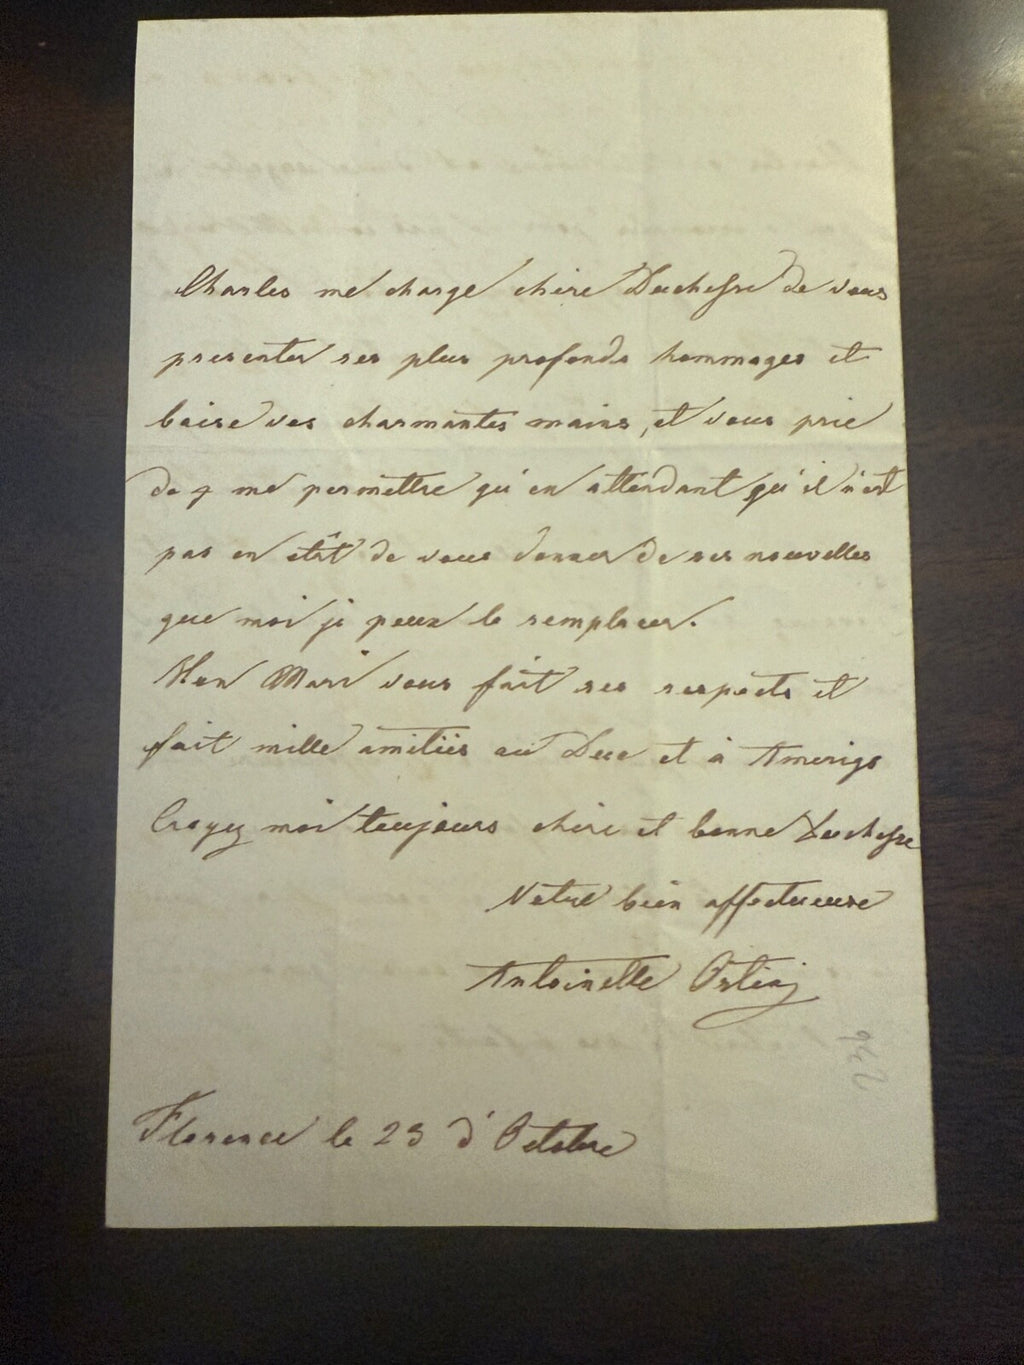 Charles me charge chère Duchesse de vous
presenter ses plus profonds hommages et
baise vos charmantes mains, et vous prie
de me permettre qu'en attendant qu'il n'est
pas en étât de vous donner de ses nouvelles
que moi je peux le remplacer.
Mon Mari vous fait ses respects et
fait mille amitiés au Duc et à Amerigo
Croyez moi toujours chère et bonne Duchesse
Votre bien affectueuse
Antoinette
Florence le 23 d'Octobre